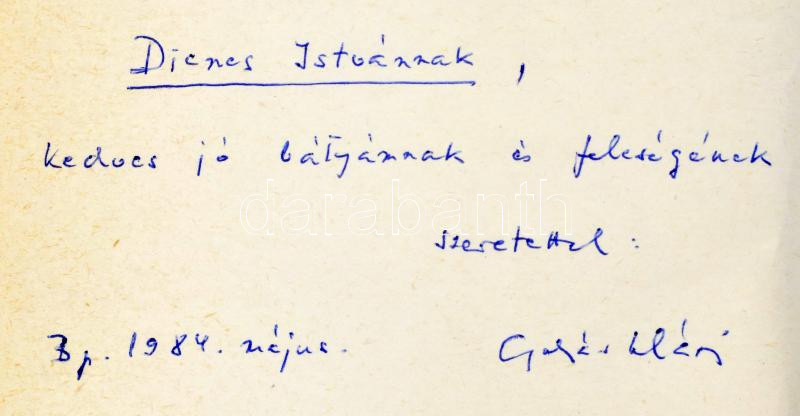 Dienes Istvánnak,
kedves jó bátyámnak és feleségének
darabanth
szeretettel:
Bp. 1984. május.